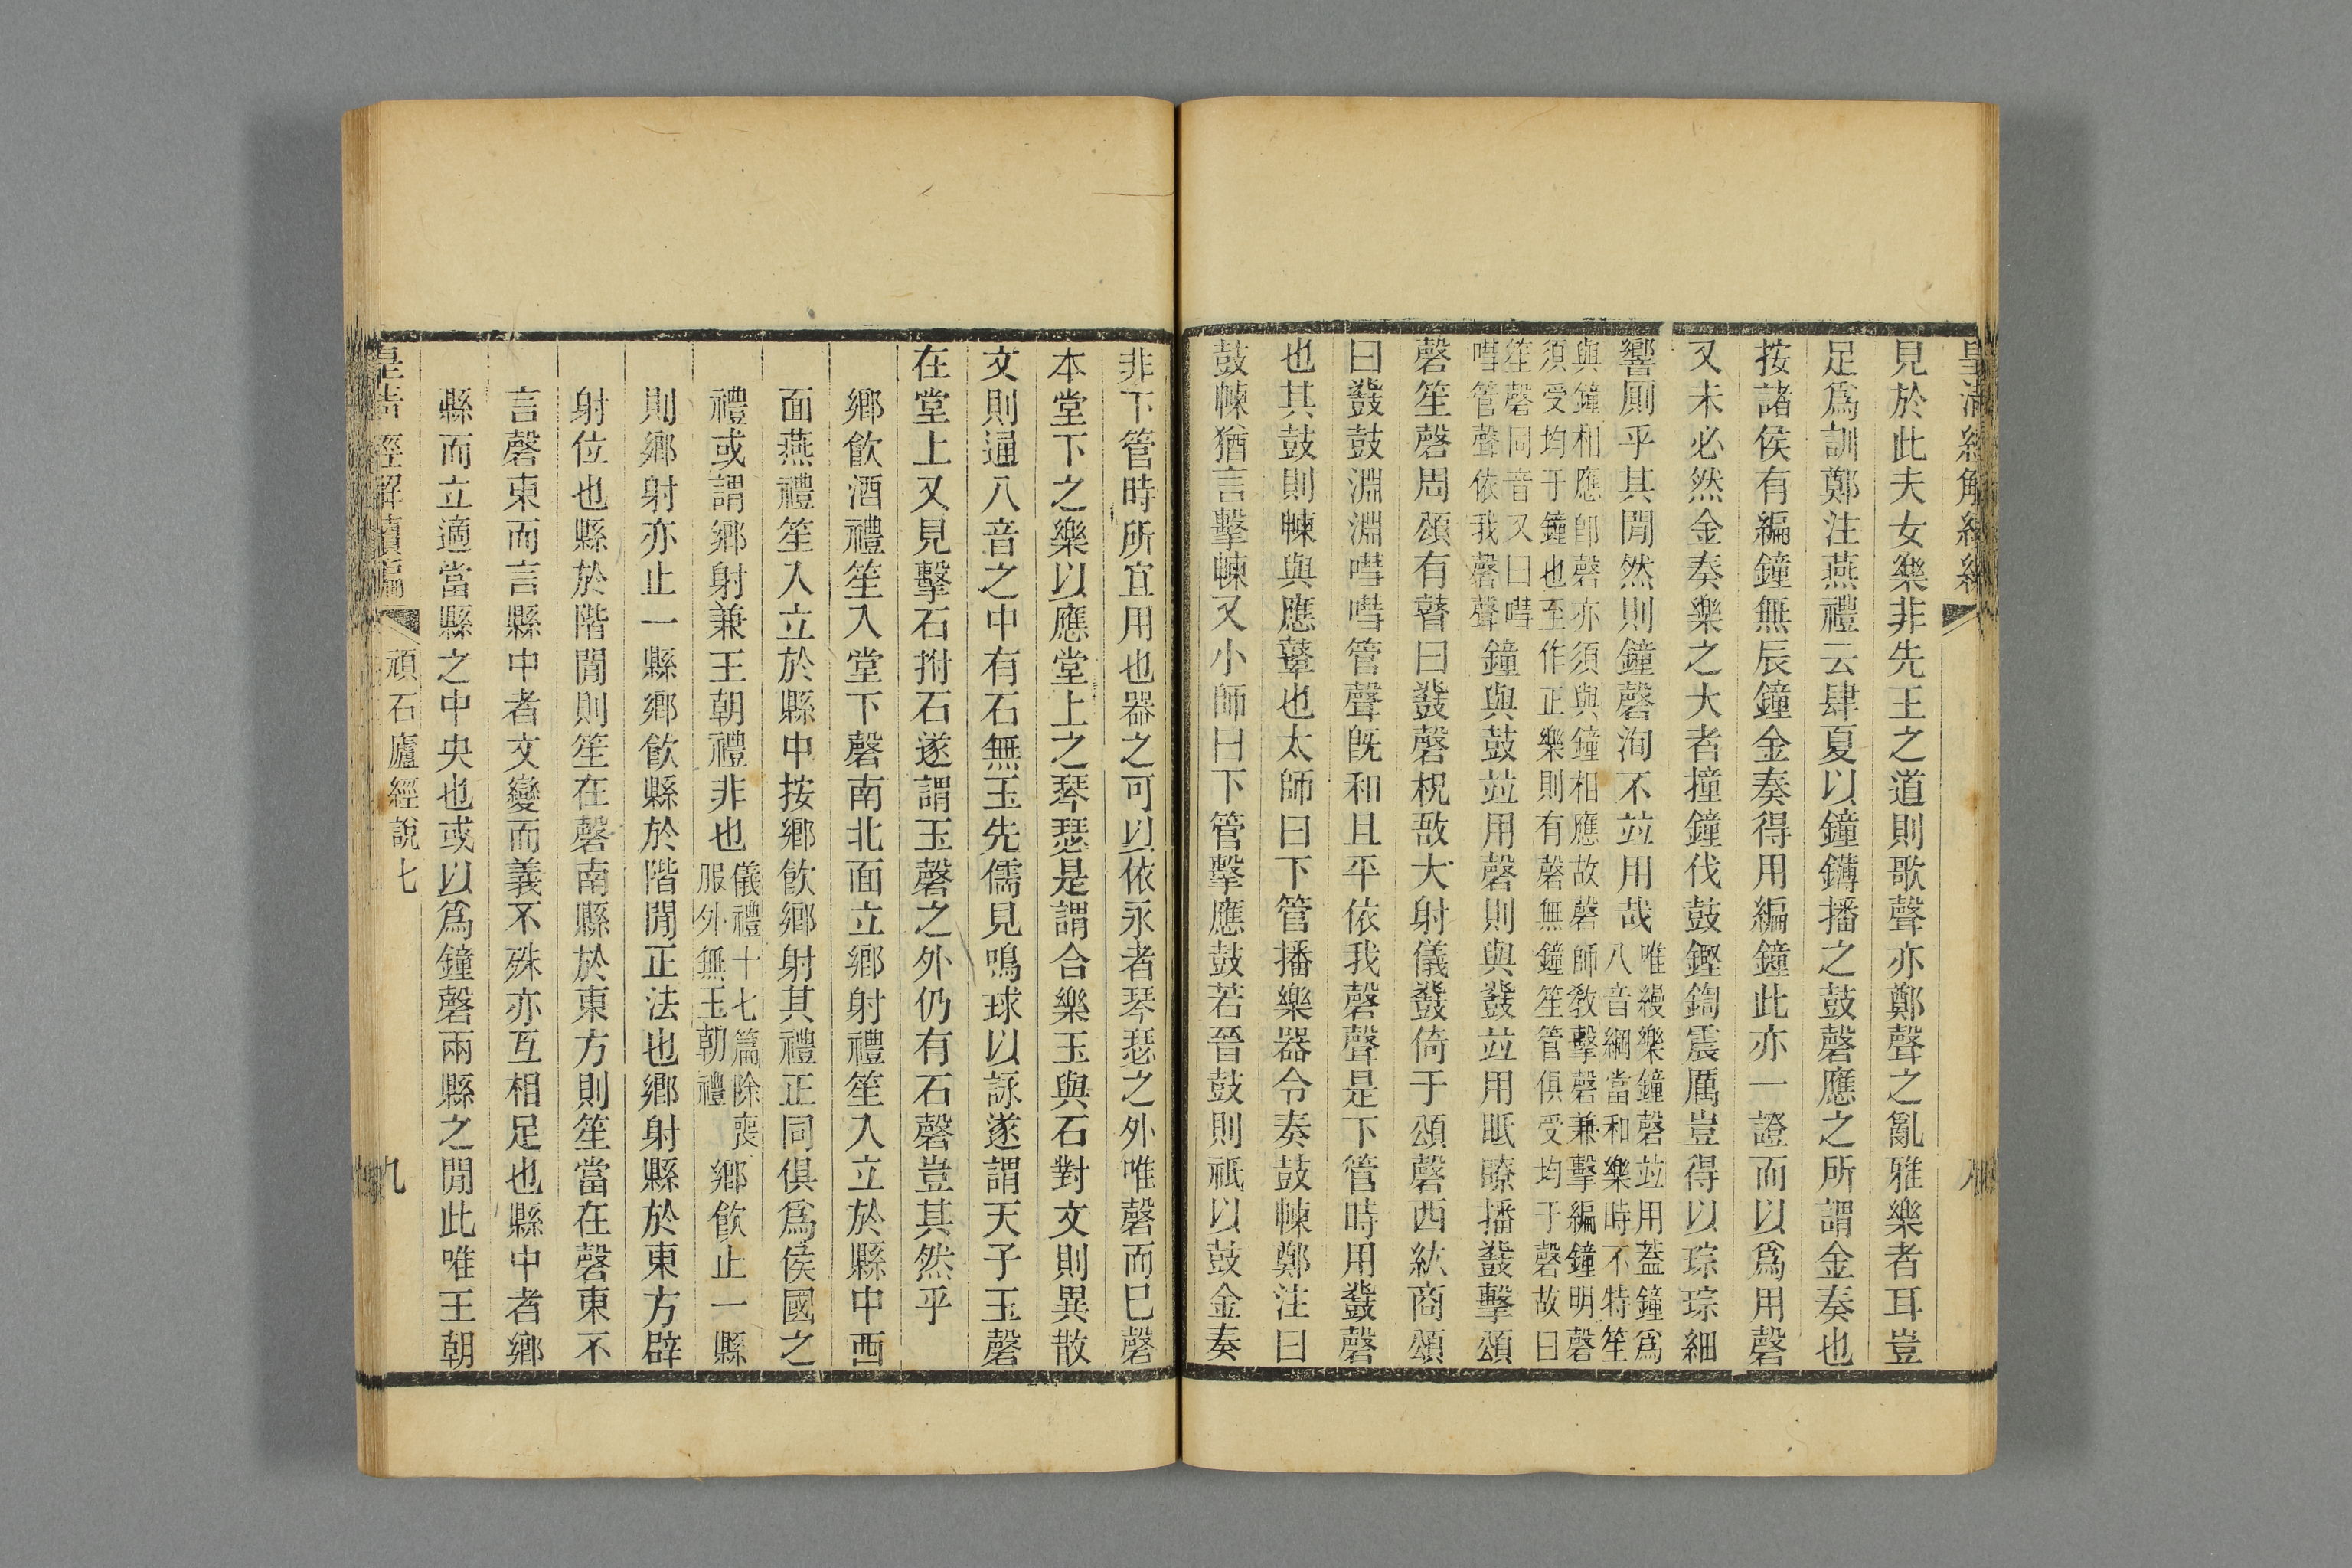 見於此夫女樂非先王之道則歌聲亦鄭聲之亂雅樂者耳豈
足爲訓鄭注燕禮云肆夏以鐘鏄播之鼓磬應之所謂金奏也
按諸侯有編鐘無辰鐘金奏得用編鐘此亦一證而以爲用磬
又未必然金奏樂之大者撞鐘伐鼓鏗鍧震厲豈得以琮琮細
響厠乎其閒然則鐘磬洵不竝用哉唯縵樂鐘磬竝用葢鐘爲
八音綱當和樂時不特笙
與鐘相應卽磬亦須與鐘相應故磬師敎擊磬兼擊編鐘明磬
須受均于鐘也至作正樂則有磬無鐘笙管俱受均于磬故曰
笙磬同音又曰嘒
嘒管聲依我磬聲鐘與鼓竝用磬則與鼗竝用眡瞭播鼗擊頌
磬笙磬周頌有瞽曰鼗磬柷敔大射儀鼗倚于頌磬西紘商頌
曰鼗鼓淵淵嘒嘒管聲旣和且平依我磬聲是下管時用鼗磬
也其鼓則朄與應鼙也太師曰下管播樂器令奏鼓朄鄭注曰
鼓朄猶言擊朄又小師曰下管擊應鼓若晉鼓則祇以鼓金奏
非下管時所宜用也器之可以依永者琴瑟之外唯磬而巳磬
本堂下之樂以應堂上之琴瑟是謂合樂玉與石對文則異散
文則通八音之中有石無玉先儒見鳴球以詠遂謂天子玉磬
在堂上又見擊石拊石遂謂玉磬之外仍有石磬豈其然乎
鄉飮酒禮笙入堂下磬南北面立鄉射禮笙入立於縣中西
面燕禮笙入立於縣中按鄉飮鄉射其禮正同俱爲侯國之
禮或謂鄉射兼王朝禮非也儀禮十七篇除喪
服外無王朝禮鄉飮止一縣
則鄉射亦止一縣鄉飮縣於階閒正法也鄉射縣於東方辟
射位也縣於階閒則笙在磬南縣於東方則笙當在磬東不
言磬東而言縣中者文變而義不殊亦互相足也縣中者鄉
縣而立適當縣之中央也或以爲鐘磬兩縣之閒此唯王朝
皇淸經解續編
頑石廬經說七
九